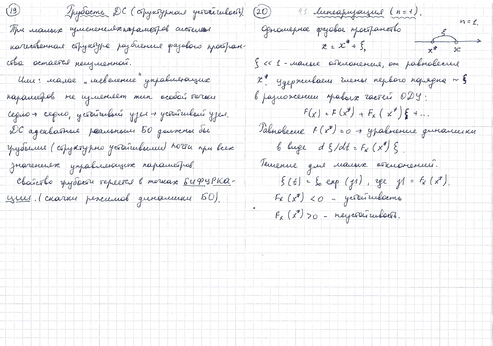 19
Грубость ДС (структурная устойчивость)
При малых изменениях параметров системы
качественная структура разбиения фазового простран-
ства остается неизменной.
Или: малое „шевеление" управляющих
параметров не изменяет тип особой точки
седло → седло, устойчивый узел → устойчивый узел.
ДС адекватные реальным БО должны быть
грубыми (структурно устойчивыми) почти при всех
значениях управляющих параметров.
Свойство грубости теряется в точках БИФУРКА-
ЦИИ. (скачки режимов динамики БО).
20
Линеаризация (n=1).
Одномерное фазовое пространство
x = x* + ξ,
n=1.
ξ
x* x
ξ << 1 - малые отклонения, от равновесия
x*, удерживаем члены первого порядка ~ ξ
в разложении правых частей ОДУ:
F(x) = F(x*) + Fx(x*)ξ + ...
Равновесие F(x*)=0 → уравнение динамики
в виде dξ/dt = Fx(x*)ξ
Решение для малых отклонений.
ξ(t) = ξ₀ exp(γt), где γ1 = Fx(x*).
Fx(x*) < 0 - устойчивость
Fx(x*) > 0 - неустойчивость.